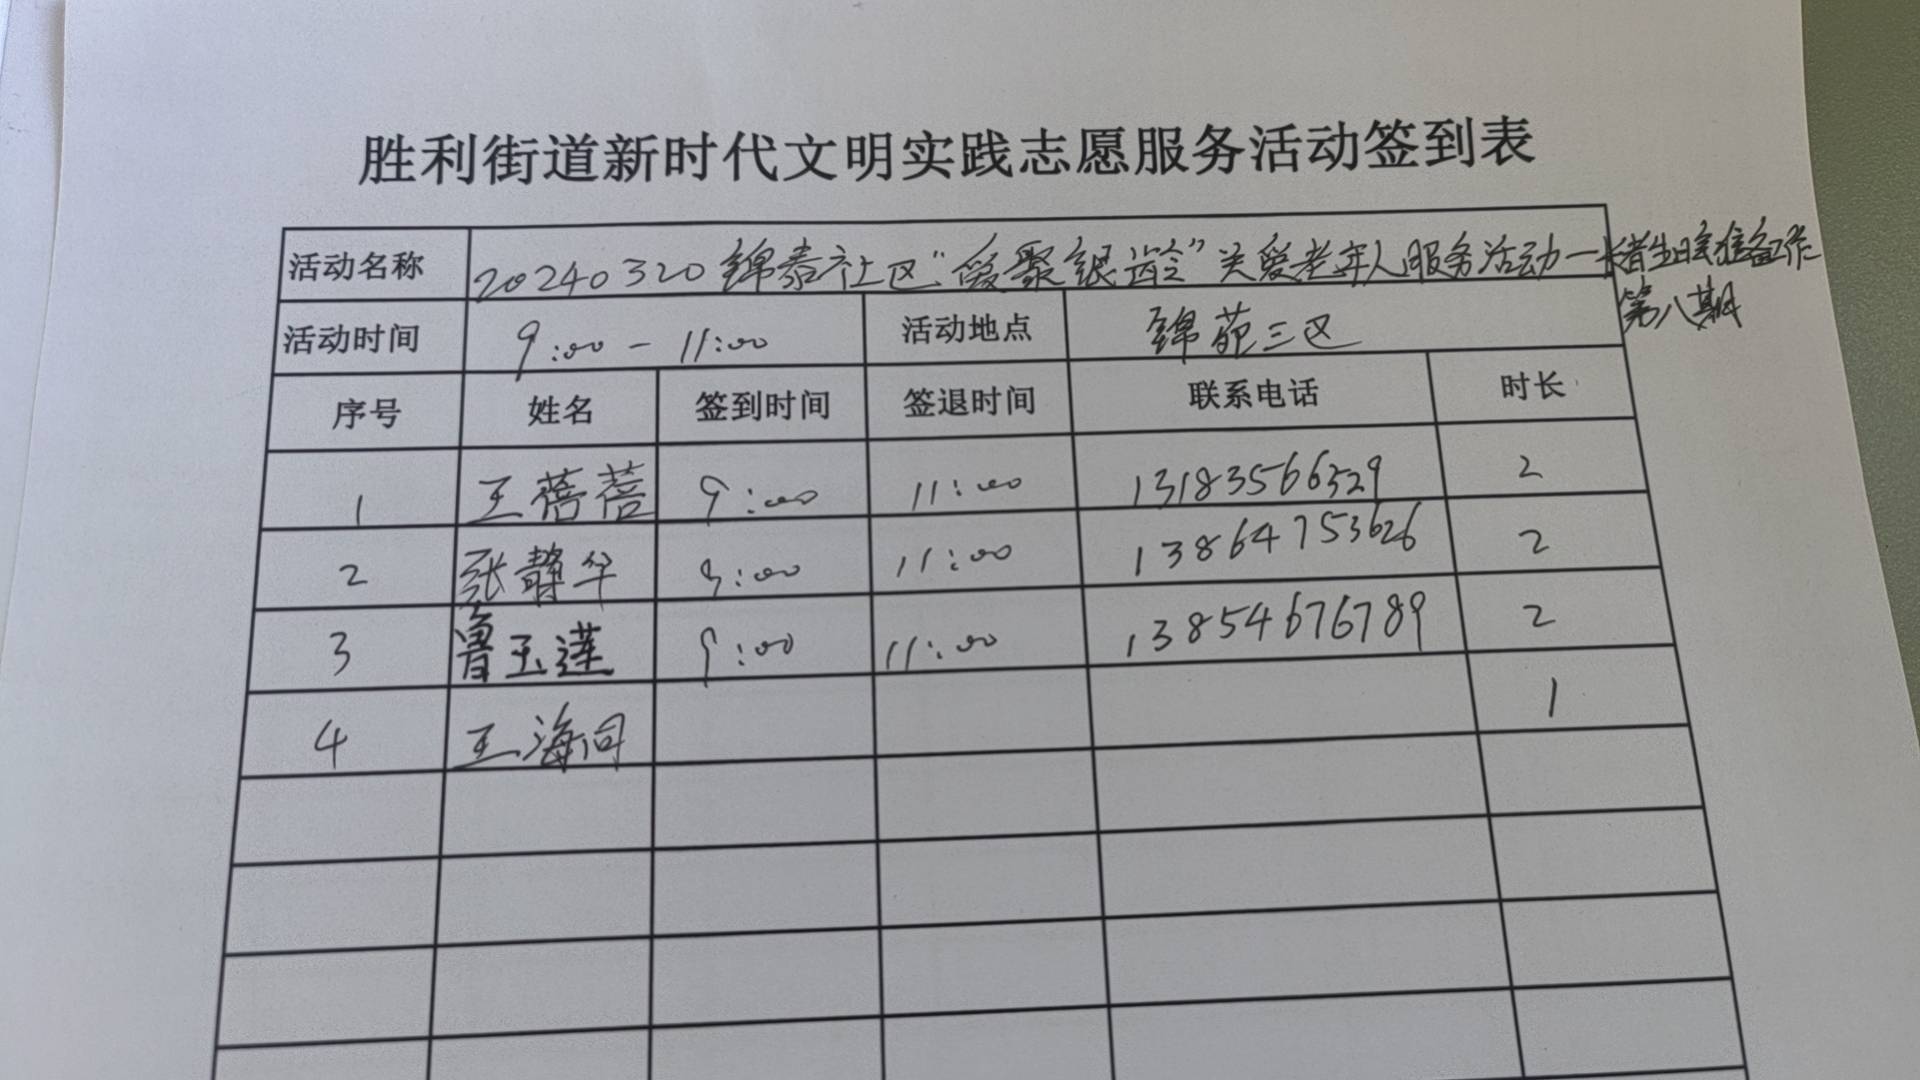 胜利街道新时代文明实践志愿服务活动签到表
活动名称 20240320锦泰社区“爱聚银龄”关爱老年人服务活动—长者生日会准备工作
第八期
活动时间 9:00-11:00 活动地点 锦苑三区
序号 姓名 签到时间 签退时间 联系电话 时长
1 王蓓蓓 9:00 11:00 13183566329 2
2 张静华 9:00 11:00 13864753626 2
3 鲁玉莲 9:00 11:00 13854676789 2
4 王海 1